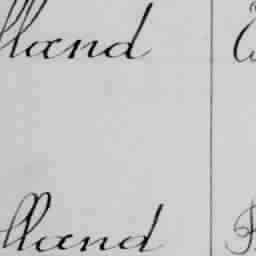 lland
lland